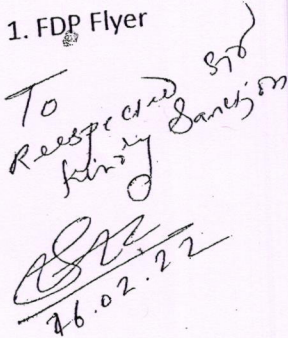 1. FDP Flyer
To
Respected Sir
Kindly Sanction
16.02.22